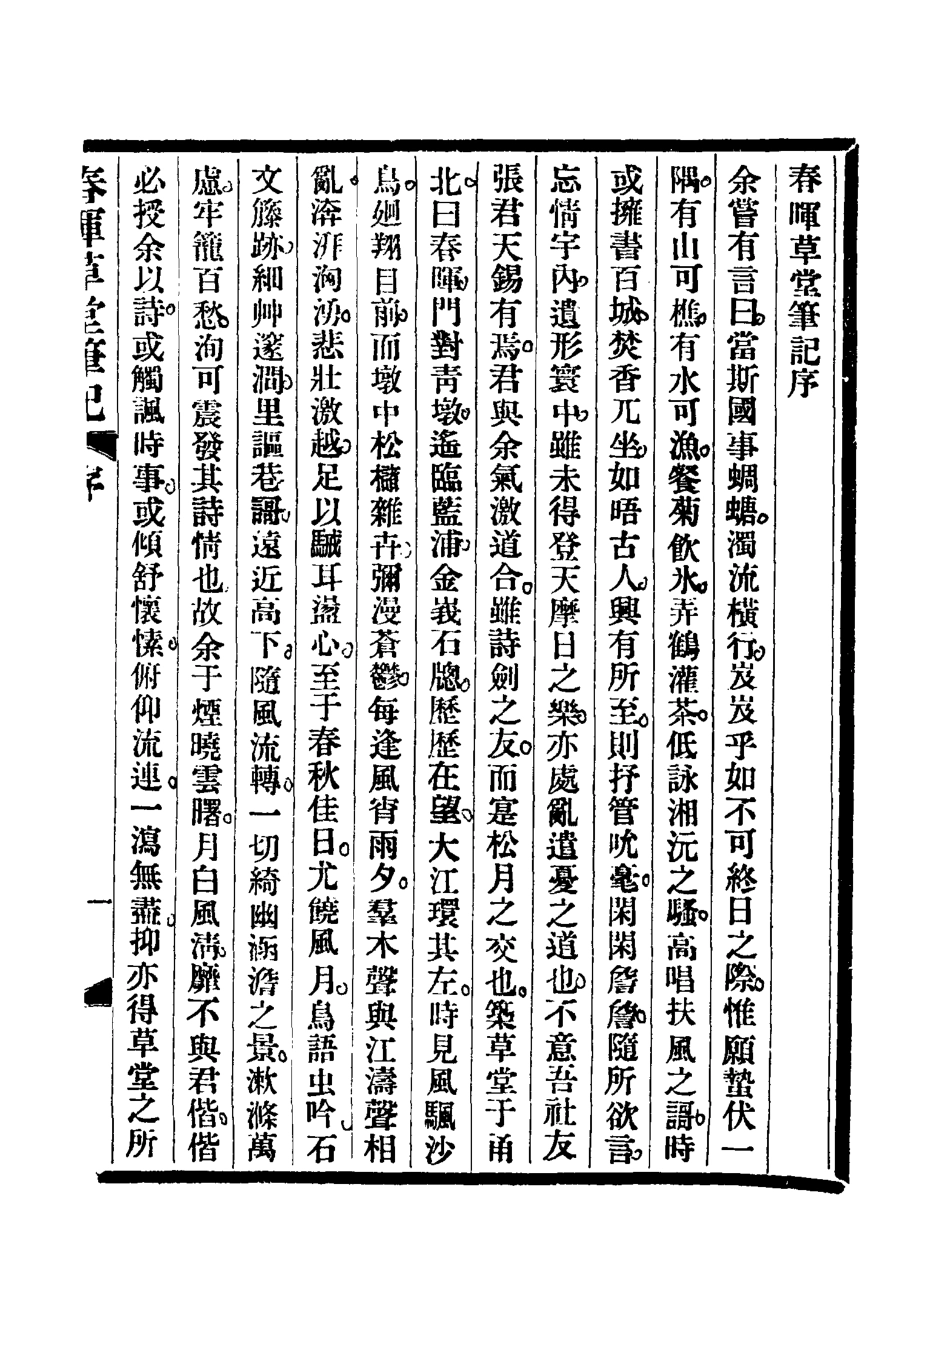 春暉草堂筆記序
余嘗有言曰。當斯國事蜩螗。濁流橫行。岌岌乎如不可終日之際。惟願蟄伏一
隅。有山可樵。有水可漁。餐菊飲氷。弄鶴灌茶。低詠湘沅之騷。高唱扶風之謌。時
或擁書百城。焚香兀坐。如晤古人。興有所至。則抒管吮毫。閑閑詹詹。隨所欲言。
忘情宇內。遺形寰中。雖未得登天摩日之樂。亦處亂遣憂之道也。不意吾社友
張君天錫有焉。君與余氣激道合。雖詩劍之友。而寔松月之交也。築草堂于甬
北。曰春暉。門對靑墩。遙臨藍浦。金峩石牕。歷歷在望。大江環其左。時見風颿沙
鳥。廻翔目前。而墩中松櫧雜卉。彌漫蒼鬱。每逢風宵雨夕。羣木聲與江濤聲相
亂。渀湃洶湧。悲壯激越。足以駴耳盪心。至于春秋佳日。尤饒風月。鳥語虫吟。石
文籐跡。細艸邃澗。里謳巷謌。遠近高下。隨風流轉。一切綺幽涵澹之景。漱滌萬
慮。牢籠百愁。洵可震發其詩情也。故余于煙曉雲曙。月白風淸。靡不與君偕。偕
必授余以詩。或觸諷時事。或傾舒懷愫。俯仰流連。一瀉無盡。抑亦得草堂之所
春暉草堂筆記 序 一